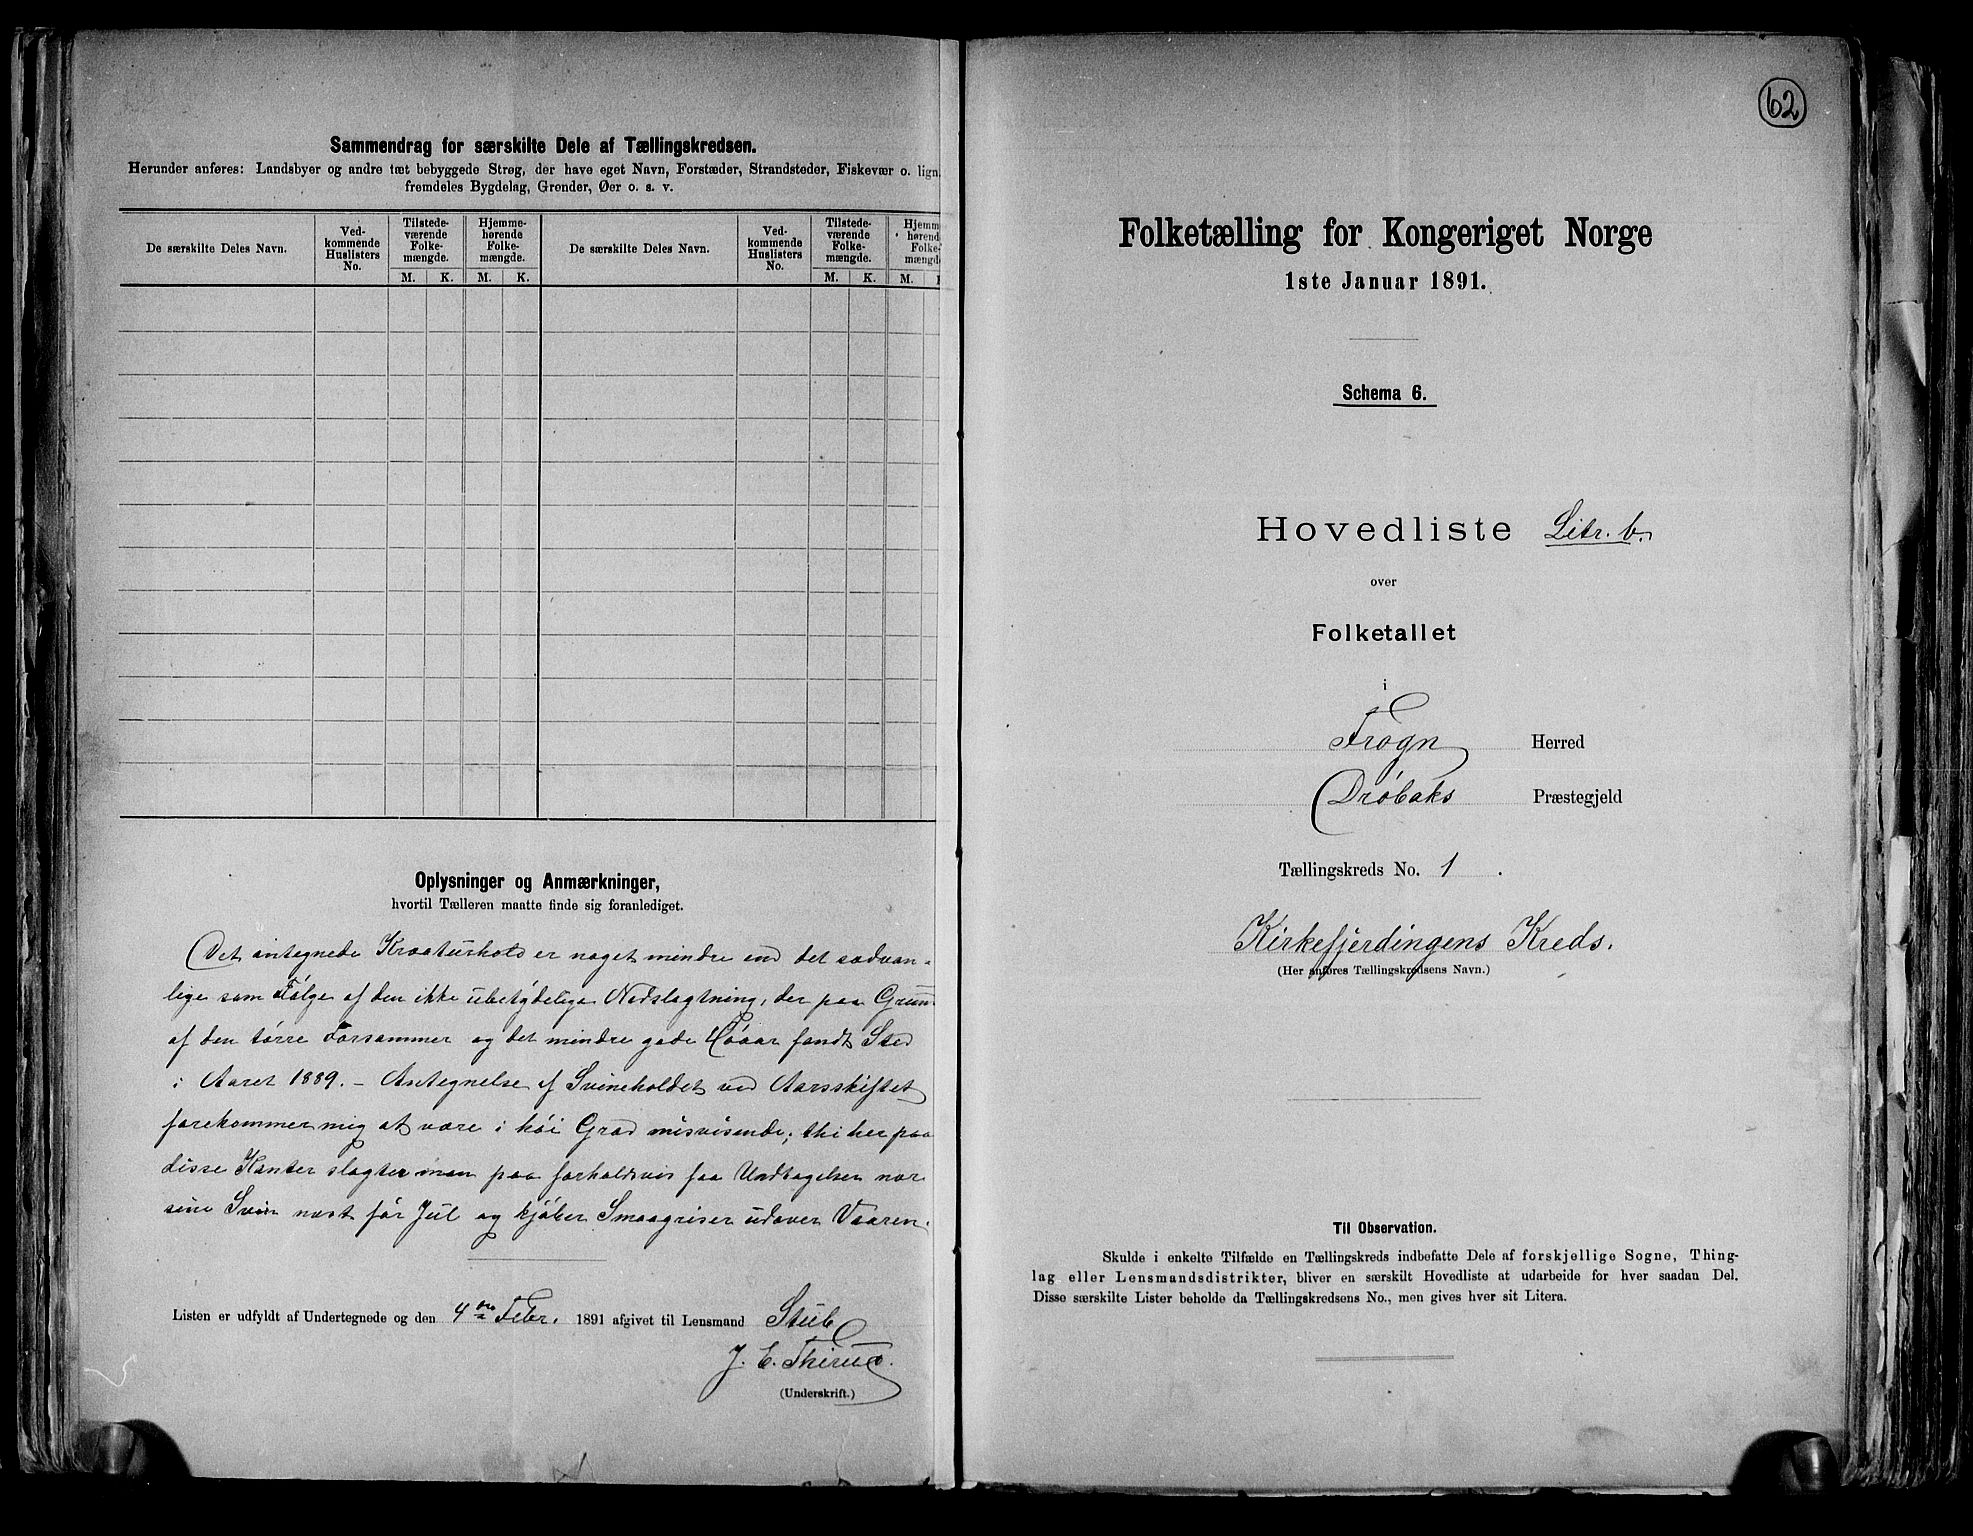 Sammendrag for særskilte Dele af Tællingskredsen.
Herunder anføres: Landsbyer og andre tæt bebyggede Strøg, der have eget Navn, Forstæder, Strandsteder, Fiskevær o. lign.
fremdeles Bygdelag, Grender, Øer o. s. v.
De særskilte Deles Navn.
Ved-
kommende
Huslisters
No.
Tilstede-
værende
Folke-
mængde.
Hjemme-
hørende
Folke-
mængde.
De særskilte Deles Navn.
Ved-
kommende
Huslisters
No.
Tilstede-
værende
Folke-
mængde.
Hjemm
hørend
Folke-
mængd
M. K. M. K. M. K. M.
Oplysninger og Anmærkninger,
hvortil Tælleren maatte finde sig foranlediget.
Det antegnede Kreaturhold er noget mindre end det sædvan-
lige som Følge af den ikke ubetydelige Nedslagtning, der paa Grun
af den tørre Forsommer og det mindre gode Høaar fandt Sted
i Aaret 1889. – Antegnelse af Svineholdet ved Aarsskiftet
forekommer mig at være i høi Grad misvisende; thi her paa
disse Kanter slagter man paa forholdsvis faa Undtagelser nær
sine Svin næst før Jul og kjøber Smaagriser udover Vaaren.
Listen er udfyldt af Undertegnede og den 4de Febr. 1891 afgivet til Lensmand Stub
J. E. Thirud.
(Underskrift.)
62
Folketælling for Kongeriget Norge
1ste Januar 1891.
Schema 6.
Hovedliste Litr. b.
over
Folketallet
i
Frogn Herred
Drøbaks Præstegjeld
Tællingskreds No. 1.
Kirkefjerdingens Kreds.
(Her anføres Tællingskredsens Navn.)
Til Observation.
Skulde i enkelte Tilfælde en Tællingskreds indbefatte Dele af forskjellige Sogne, Thing-
lag eller Lensmandsdistrikter, bliver en særskilt Hovedliste at udarbeide for hver saadan Del.
Disse særskilte Lister beholde da Tællingskredsens No., men gives hver sit Litera.